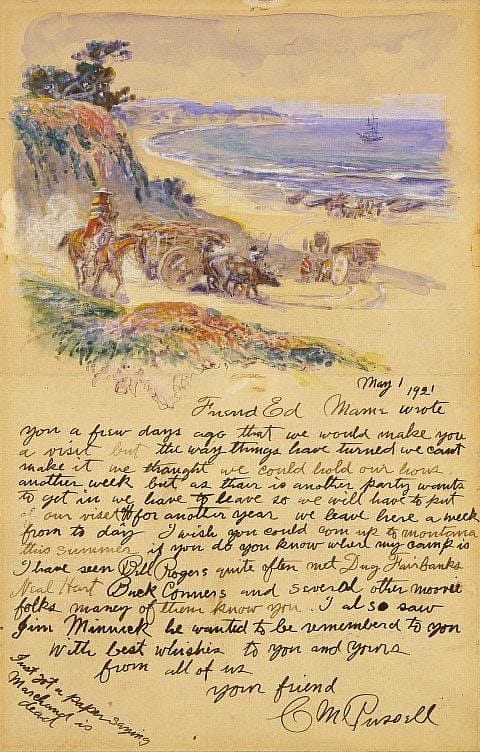 May 1 1921
Friend Ed Mame wrote
you a fiew days ago that we would make you
a visit but the way things have turned we cant
make it we thaught we could hold our hous
another week but as thair is another party wants
to get in we have to leave so we will have to put
of our viset for another year we leave here a week
from to day I wish you could com up to montana
this summer if you do you know wher my camp is
I have seen Bill Rogers quite often met Dug Fairbanks
Neal Hart Buck Conners and severl other moovie
folks maney of them know you. I also saw
Jim Minnick he wanted to be rememberd to you
With best whishes to you and yours
from all of us
your friend
C M Russell
Just got a paper saying
Marchand is
dead